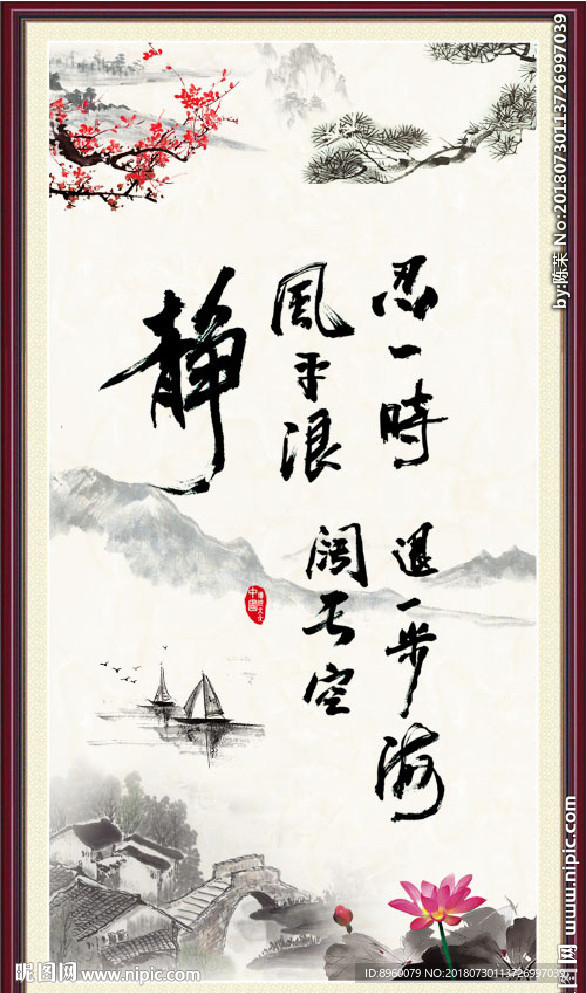 忍一時
風平浪
靜
退一步海
闊天空
中國
by:陈茉 No:20180730113726997039
昵图网 www.nipic.com
昵图网 www.nipic.com
ID:8960079 NO:20180730113726997039